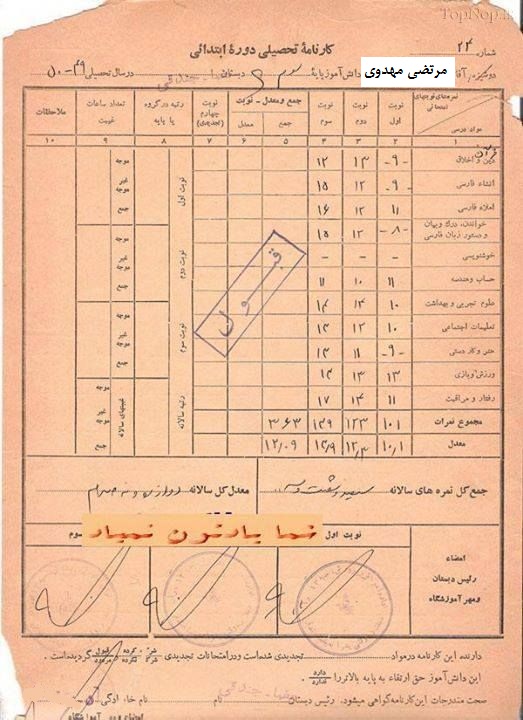 TopNop.ir
شماره ۲۴
کارنامهٔ تحصیلی دورهٔ ابتدائی
مرتضی مهدوی دانش‌آموز پایهٔ سوم دبستان در سال تحصیلی ۴۹-۵۰
نمره‌های نوبتهای امتحانی
مواد درسی
نوبت اول
نوبت دوم
نوبت سوم
جمع و معدل ـ نوبت
جمع
معدل
نوبت چهارم (تجدیدی)
رتبه در گروه یا پایه
تعداد ساعات غیبت
ملاحظات
۱ ۲ ۳ ۴ ۵ ۶ ۷ ۸ ۹ ۱۰
قرآن
دین و اخلاق -۹- ۱۳ ۱۲
انشاء فارسی -۹- ۱۲ ۱۵
املاء فارسی ۱۱ ۱۲ ۱۶
خواندن، درک و بیان و دستور زبان فارسی -۸- ۱۲ ۱۵
خوشنویسی - - -
حساب و هندسه ۱۱ ۱۰ ۱۱
علوم تجربی و بهداشت ۱۰ ۱۳ ۱۴
تعلیمات اجتماعی ۱۰ ۱۲ ۱۳
هنر و کار دستی -۹- ۱۱ ۱۳
ورزش و بازی ۱۳ ۱۳ ۱۴
رفتار و مراقبت ۱۱ ۱۴ ۱۷
مجموع نمرات ۱۰۱ ۱۲۳ ۱۳۹ ۳۶۳
معدل ۱۰/۱ ۱۲/۳ ۱۳/۹ ۱۲/۰۹
نوبت اول
موجه
غیر موجه
جمع
نوبت دوم
موجه
غیر موجه
جمع
نوبت سوم
موجه
غیر موجه
رتبه سالانه
غیبتهای سالانه
جمع
قبول
جمع کل نمره های سالانه سیصد و شصت و سه
معدل کل سالانه دوازده و نه صدم
شما یادتون نمیاد
امضاء
رئیس دبستان
و مهر آموزشگاه
نوبت اول
سوم
دارنده این کارنامه در مواد تجدیدی شده‌است و در امتحانات تجدیدی گردیده است.
این دانش‌آموز حق ارتقاء به پایه بالاتر را دارد ندارد
صحت مندرجات این کارنامه گواهی میشود. رئیس دبستان نام خانوادگی